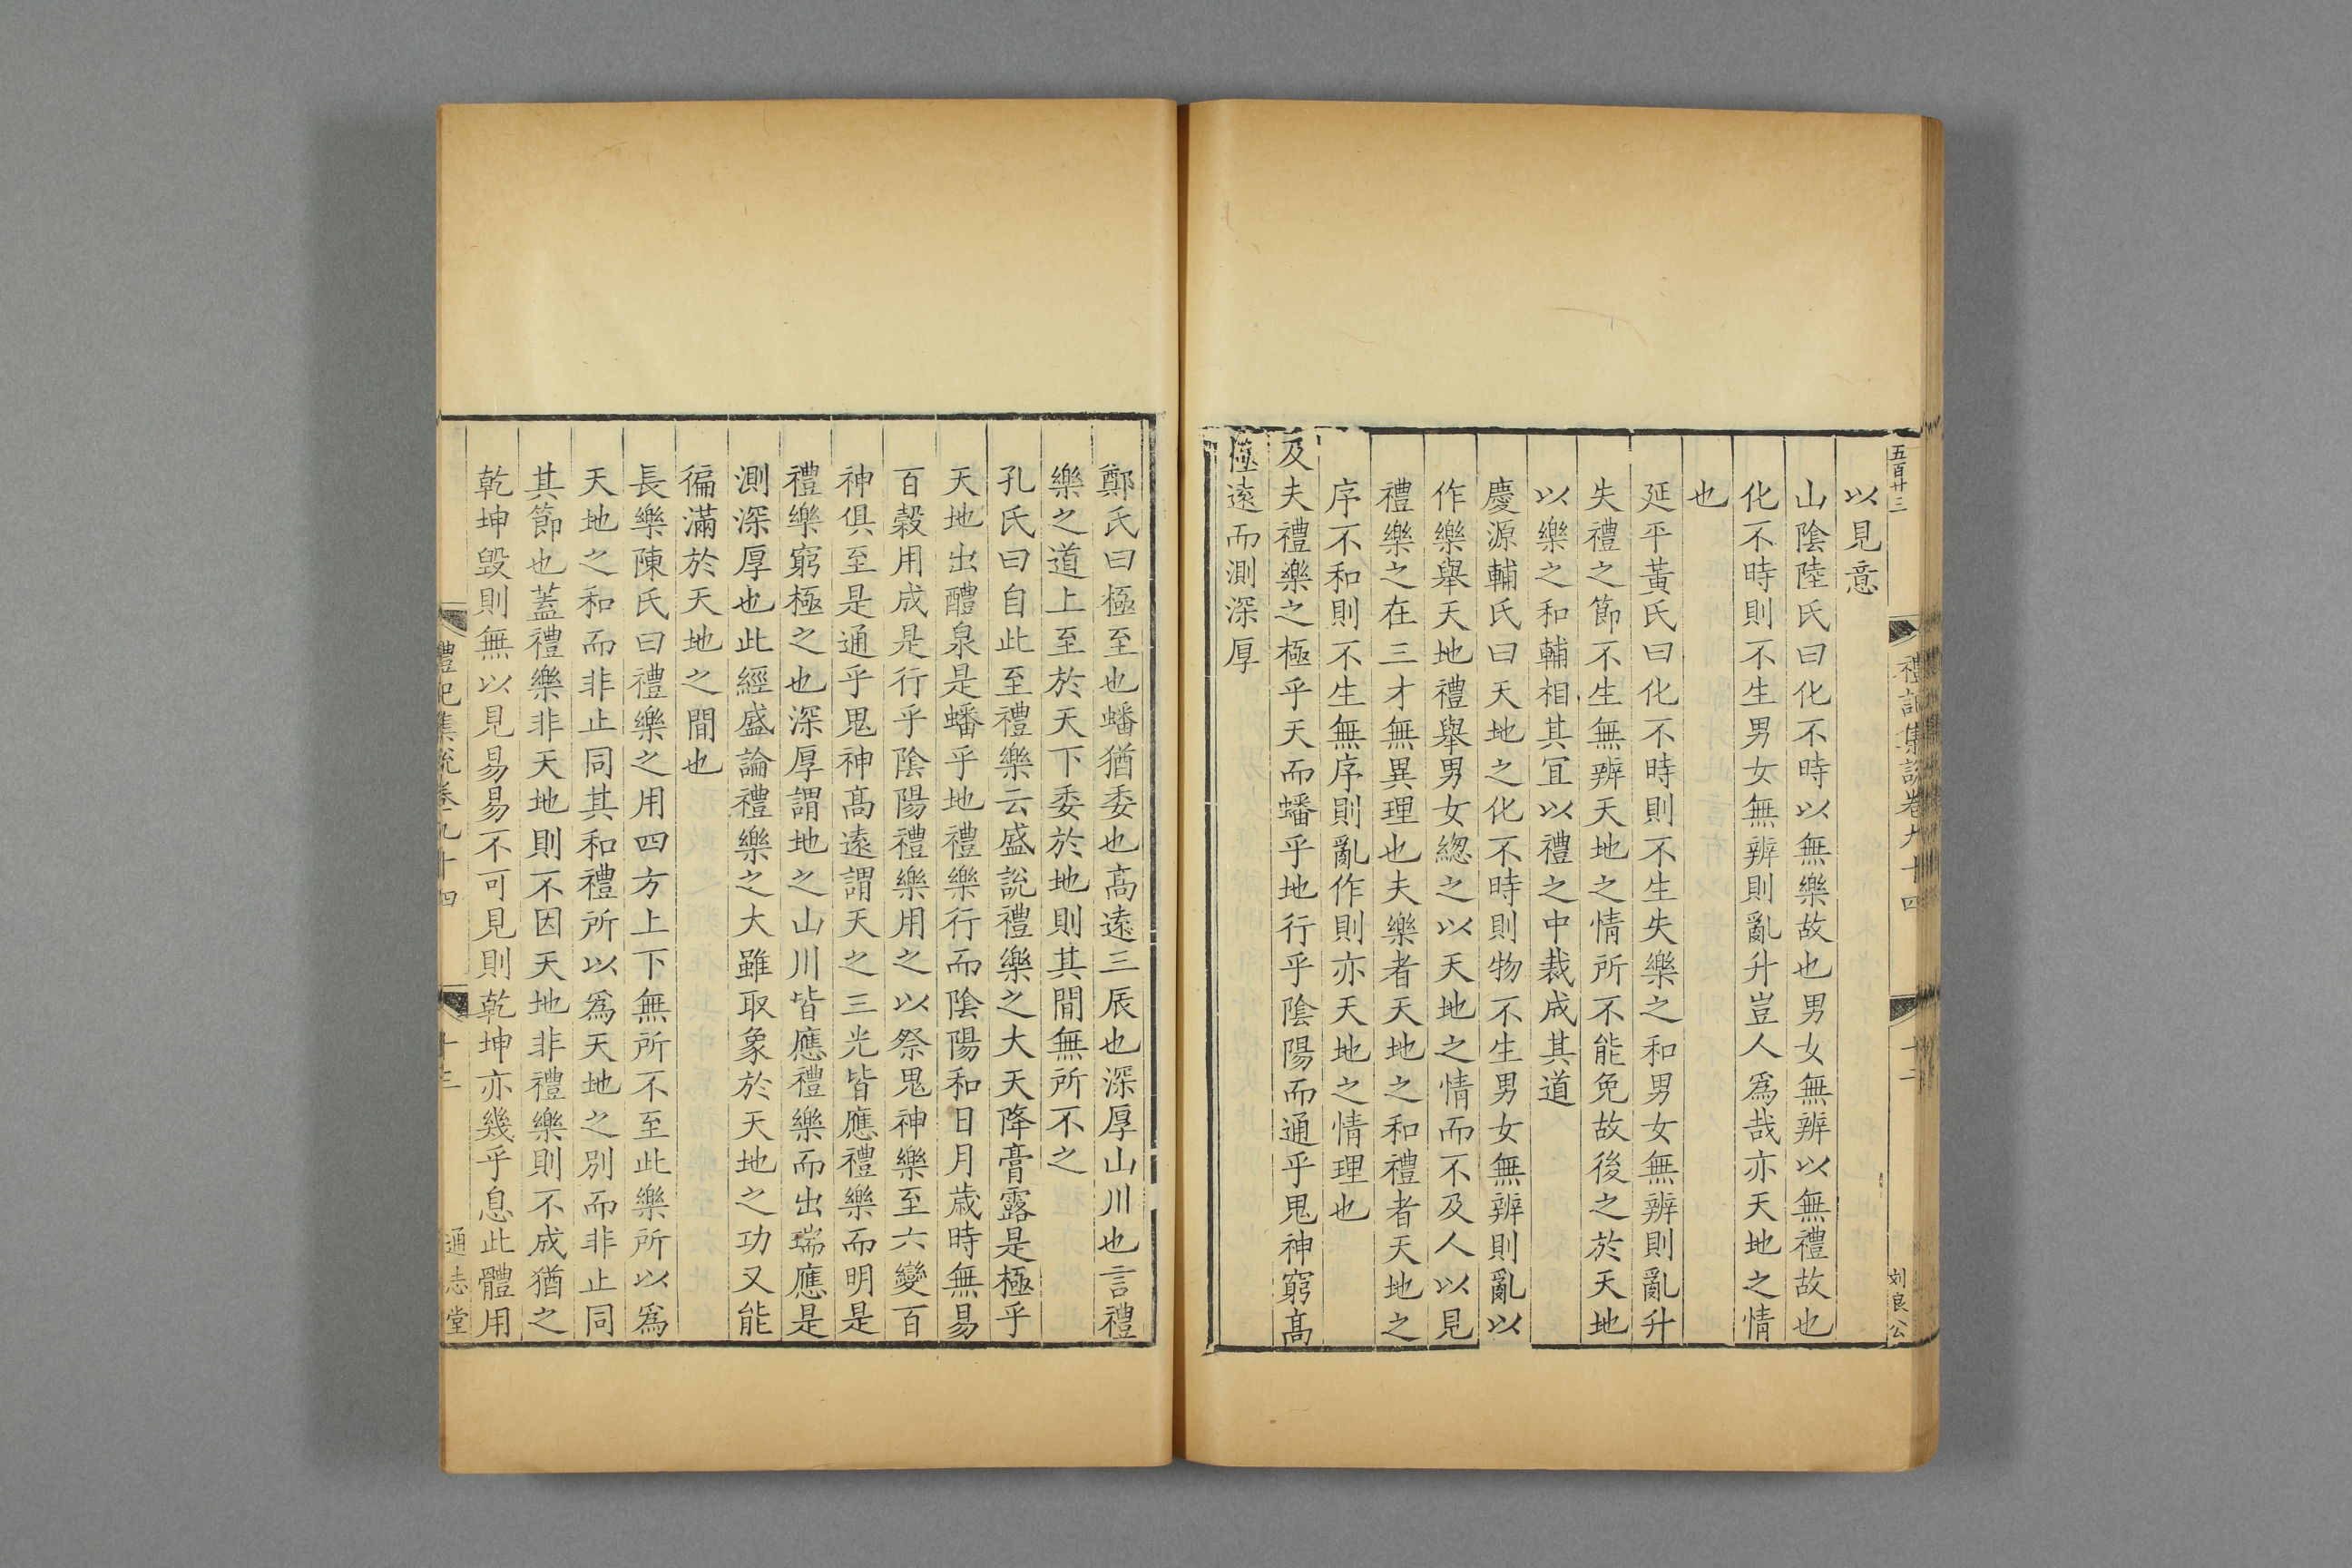 五百廿三
禮記集說卷九十四
十二
刘良公
以見意
山陰陸氏曰化不時以無樂故也男女無辨以無禮故也
化不時則不生男女無辨則亂升豈人爲哉亦天地之情
也
延平黃氏曰化不時則不生失樂之和男女無辨則亂升
失禮之節不生無辨天地之情所不能免故後之於天地
以樂之和輔相其冝以禮之中裁成其道
慶源輔氏曰天地之化不時則物不生男女無辨則亂以
作樂舉天地禮舉男女緫之以天地之情而不及人以見
禮樂之在三才無異理也夫樂者天地之和禮者天地之
序不和則不生無序則亂作則亦天地之情理也
及夫禮樂之極乎天而蟠乎地行乎陰陽而通乎鬼神窮髙
極遠而測深厚
鄭氏曰極至也蟠猶委也高遠三辰也深厚山川也言禮
樂之道上至於天下委於地則其間無所不之
孔氏曰自此至禮樂云盛說禮樂之大天降膏露是極乎
天地出醴泉是蟠乎地禮樂行而陰陽和日月歲時無易
百榖用成是行乎陰陽禮樂用之以祭鬼神樂至六變百
神俱至是通乎鬼神髙遠謂天之三光皆應禮樂而明是
禮樂窮極之也深厚謂地之山川皆應禮樂而出瑞應是
測深厚也此經盛論禮樂之大雖取象於天地之功又能
徧滿於天地之間也
長樂陳氏曰禮樂之用四方上下無所不至此樂所以爲
天地之和而非止同其和禮所以爲天地之別而非止同
其節也蓋禮樂非天地則不因天地非禮樂則不成猶之
乾坤毀則無以見易易不可見則乾坤亦幾乎息此體用
禮記集說卷九十四
十三
通志堂